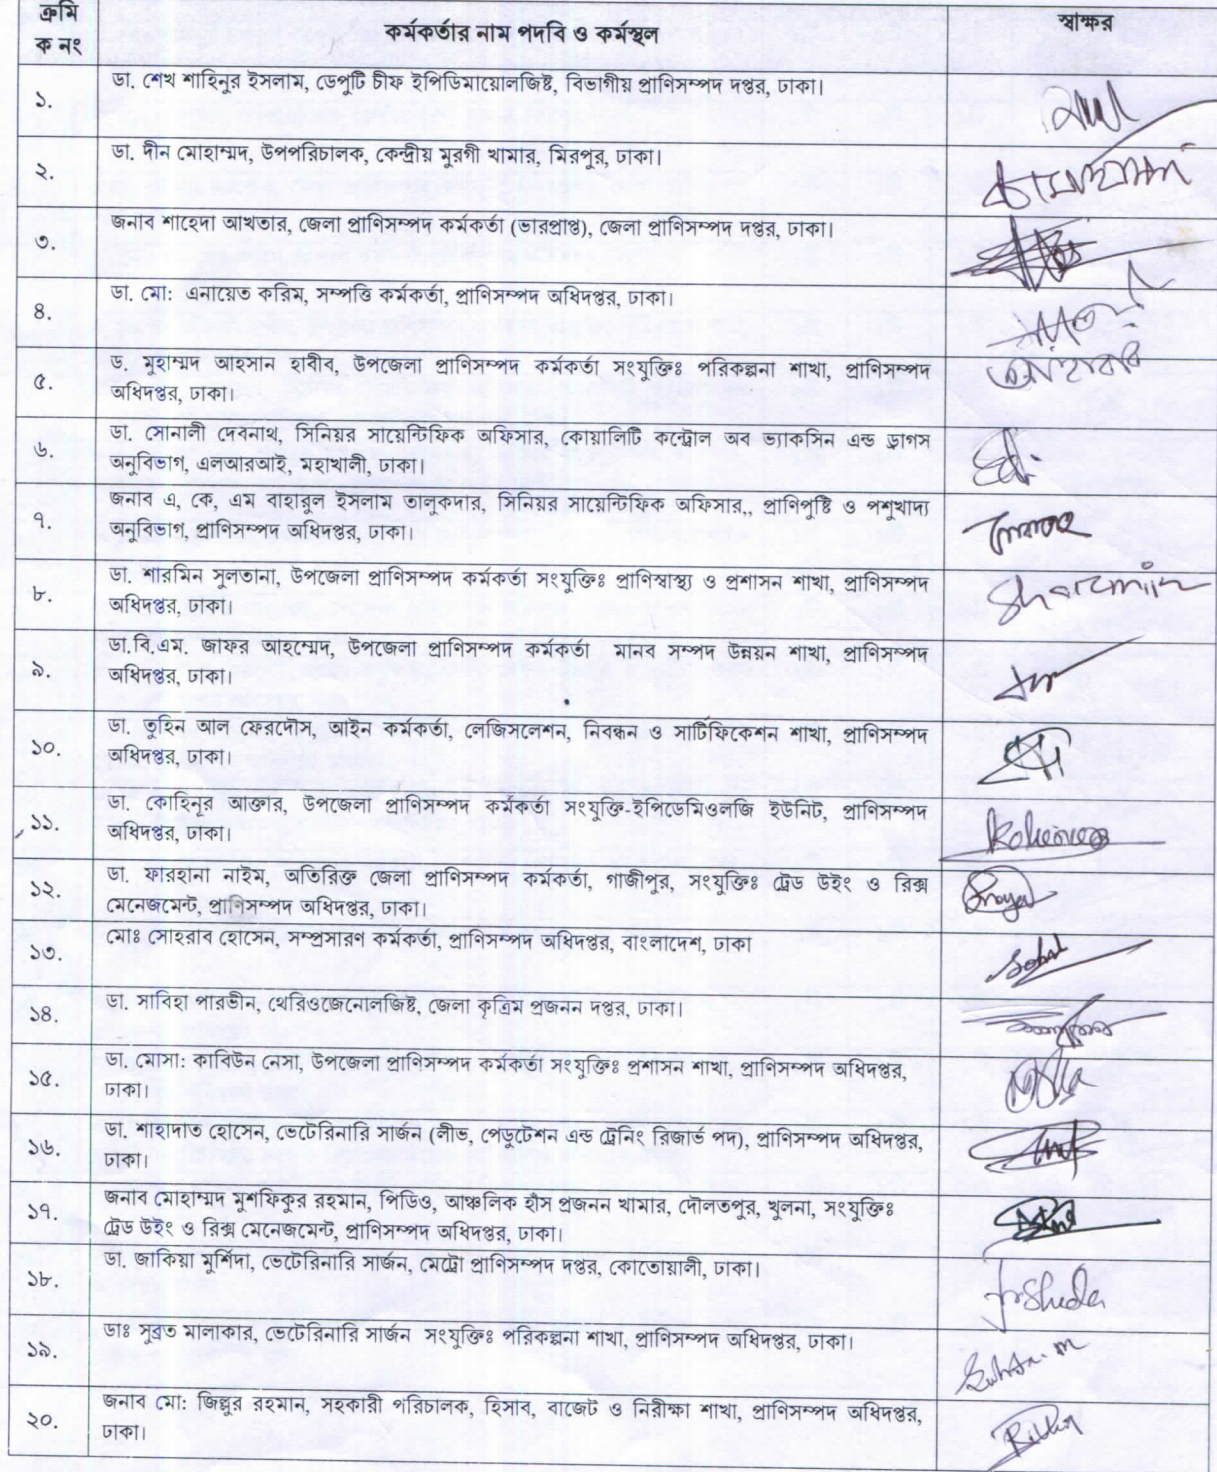 ক্রমি
ক নং
কর্মকর্তার নাম পদবি ও কর্মস্থল
স্বাক্ষর
১.
ডা. শেখ শাহিনুর ইসলাম, ডেপুটি চীফ ইপিডিমায়োলজিষ্ট, বিভাগীয় প্রাণিসম্পদ দপ্তর, ঢাকা।
২.
ডা. দীন মোহাম্মদ, উপপরিচালক, কেন্দ্রীয় মুরগী খামার, মিরপুর, ঢাকা।
৩.
জনাব শাহেদা আখতার, জেলা প্রাণিসম্পদ কর্মকর্তা (ভারপ্রাপ্ত), জেলা প্রাণিসম্পদ দপ্তর, ঢাকা।
৪.
ডা. মো: এনায়েত করিম, সম্পত্তি কর্মকর্তা, প্রাণিসম্পদ অধিদপ্তর, ঢাকা।
৫.
ড. মুহাম্মদ আহসান হাবীব, উপজেলা প্রাণিসম্পদ কর্মকর্তা সংযুক্তিঃ পরিকল্পনা শাখা, প্রাণিসম্পদ
অধিদপ্তর, ঢাকা।
৬.
ডা. সোনালী দেবনাথ, সিনিয়র সায়েন্টিফিক অফিসার, কোয়ালিটি কন্ট্রোল অব ভ্যাকসিন এন্ড ড্রাগস
অনুবিভাগ, এলআরআই, মহাখালী, ঢাকা।
৭.
জনাব এ, কে, এম বাহারুল ইসলাম তালুকদার, সিনিয়র সায়েন্টিফিক অফিসার,, প্রাণিপুষ্টি ও পশুখাদ্য
অনুবিভাগ, প্রাণিসম্পদ অধিদপ্তর, ঢাকা।
৮.
ডা. শারমিন সুলতানা, উপজেলা প্রাণিসম্পদ কর্মকর্তা সংযুক্তিঃ প্রাণিস্বাস্থ্য ও প্রশাসন শাখা, প্রাণিসম্পদ
অধিদপ্তর, ঢাকা।
Sharmin
৯.
ডা.বি.এম. জাফর আহম্মেদ, উপজেলা প্রাণিসম্পদ কর্মকর্তা মানব সম্পদ উন্নয়ন শাখা, প্রাণিসম্পদ
অধিদপ্তর, ঢাকা।
১০.
ডা. তুহিন আল ফেরদৌস, আইন কর্মকর্তা, লেজিসলেশন, নিবন্ধন ও সার্টিফিকেশন শাখা, প্রাণিসম্পদ
অধিদপ্তর, ঢাকা।
১১.
ডা. কোহিনূর আক্তার, উপজেলা প্রাণিসম্পদ কর্মকর্তা সংযুক্তি-ইপিডেমিওলজি ইউনিট, প্রাণিসম্পদ
অধিদপ্তর, ঢাকা।
১২.
ডা. ফারহানা নাইম, অতিরিক্ত জেলা প্রাণিসম্পদ কর্মকর্তা, গাজীপুর, সংযুক্তিঃ ট্রেড উইং ও রিক্স
মেনেজমেন্ট, প্রাণিসম্পদ অধিদপ্তর, ঢাকা।
১৩.
মোঃ সোহরাব হোসেন, সম্প্রসারণ কর্মকর্তা, প্রাণিসম্পদ অধিদপ্তর, বাংলাদেশ, ঢাকা
১৪.
ডা. সাবিহা পারভীন, থেরিওজেনোলজিষ্ট, জেলা কৃত্রিম প্রজনন দপ্তর, ঢাকা।
১৫.
ডা. মোসা: কাবিউন নেসা, উপজেলা প্রাণিসম্পদ কর্মকর্তা সংযুক্তিঃ প্রশাসন শাখা, প্রাণিসম্পদ অধিদপ্তর,
ঢাকা।
১৬.
ডা. শাহাদাত হোসেন, ভেটেরিনারি সার্জন (লীভ, পেডুটেশন এন্ড ট্রেনিং রিজার্ভ পদ), প্রাণিসম্পদ অধিদপ্তর,
ঢাকা।
১৭.
জনাব মোহাম্মদ মুশফিকুর রহমান, পিডিও, আঞ্চলিক হাঁস প্রজনন খামার, দৌলতপুর, খুলনা, সংযুক্তিঃ
ট্রেড উইং ও রিক্স মেনেজমেন্ট, প্রাণিসম্পদ অধিদপ্তর, ঢাকা।
১৮.
ডা. জাকিয়া মুর্শিদা, ভেটেরিনারি সার্জন, মেট্রো প্রাণিসম্পদ দপ্তর, কোতোয়ালী, ঢাকা।
১৯.
ডাঃ সুব্রত মালাকার, ভেটেরিনারি সার্জন সংযুক্তিঃ পরিকল্পনা শাখা, প্রাণিসম্পদ অধিদপ্তর, ঢাকা।
২০.
জনাব মো: জিল্লুর রহমান, সহকারী পরিচালক, হিসাব, বাজেট ও নিরীক্ষা শাখা, প্রাণিসম্পদ অধিদপ্তর,
ঢাকা।